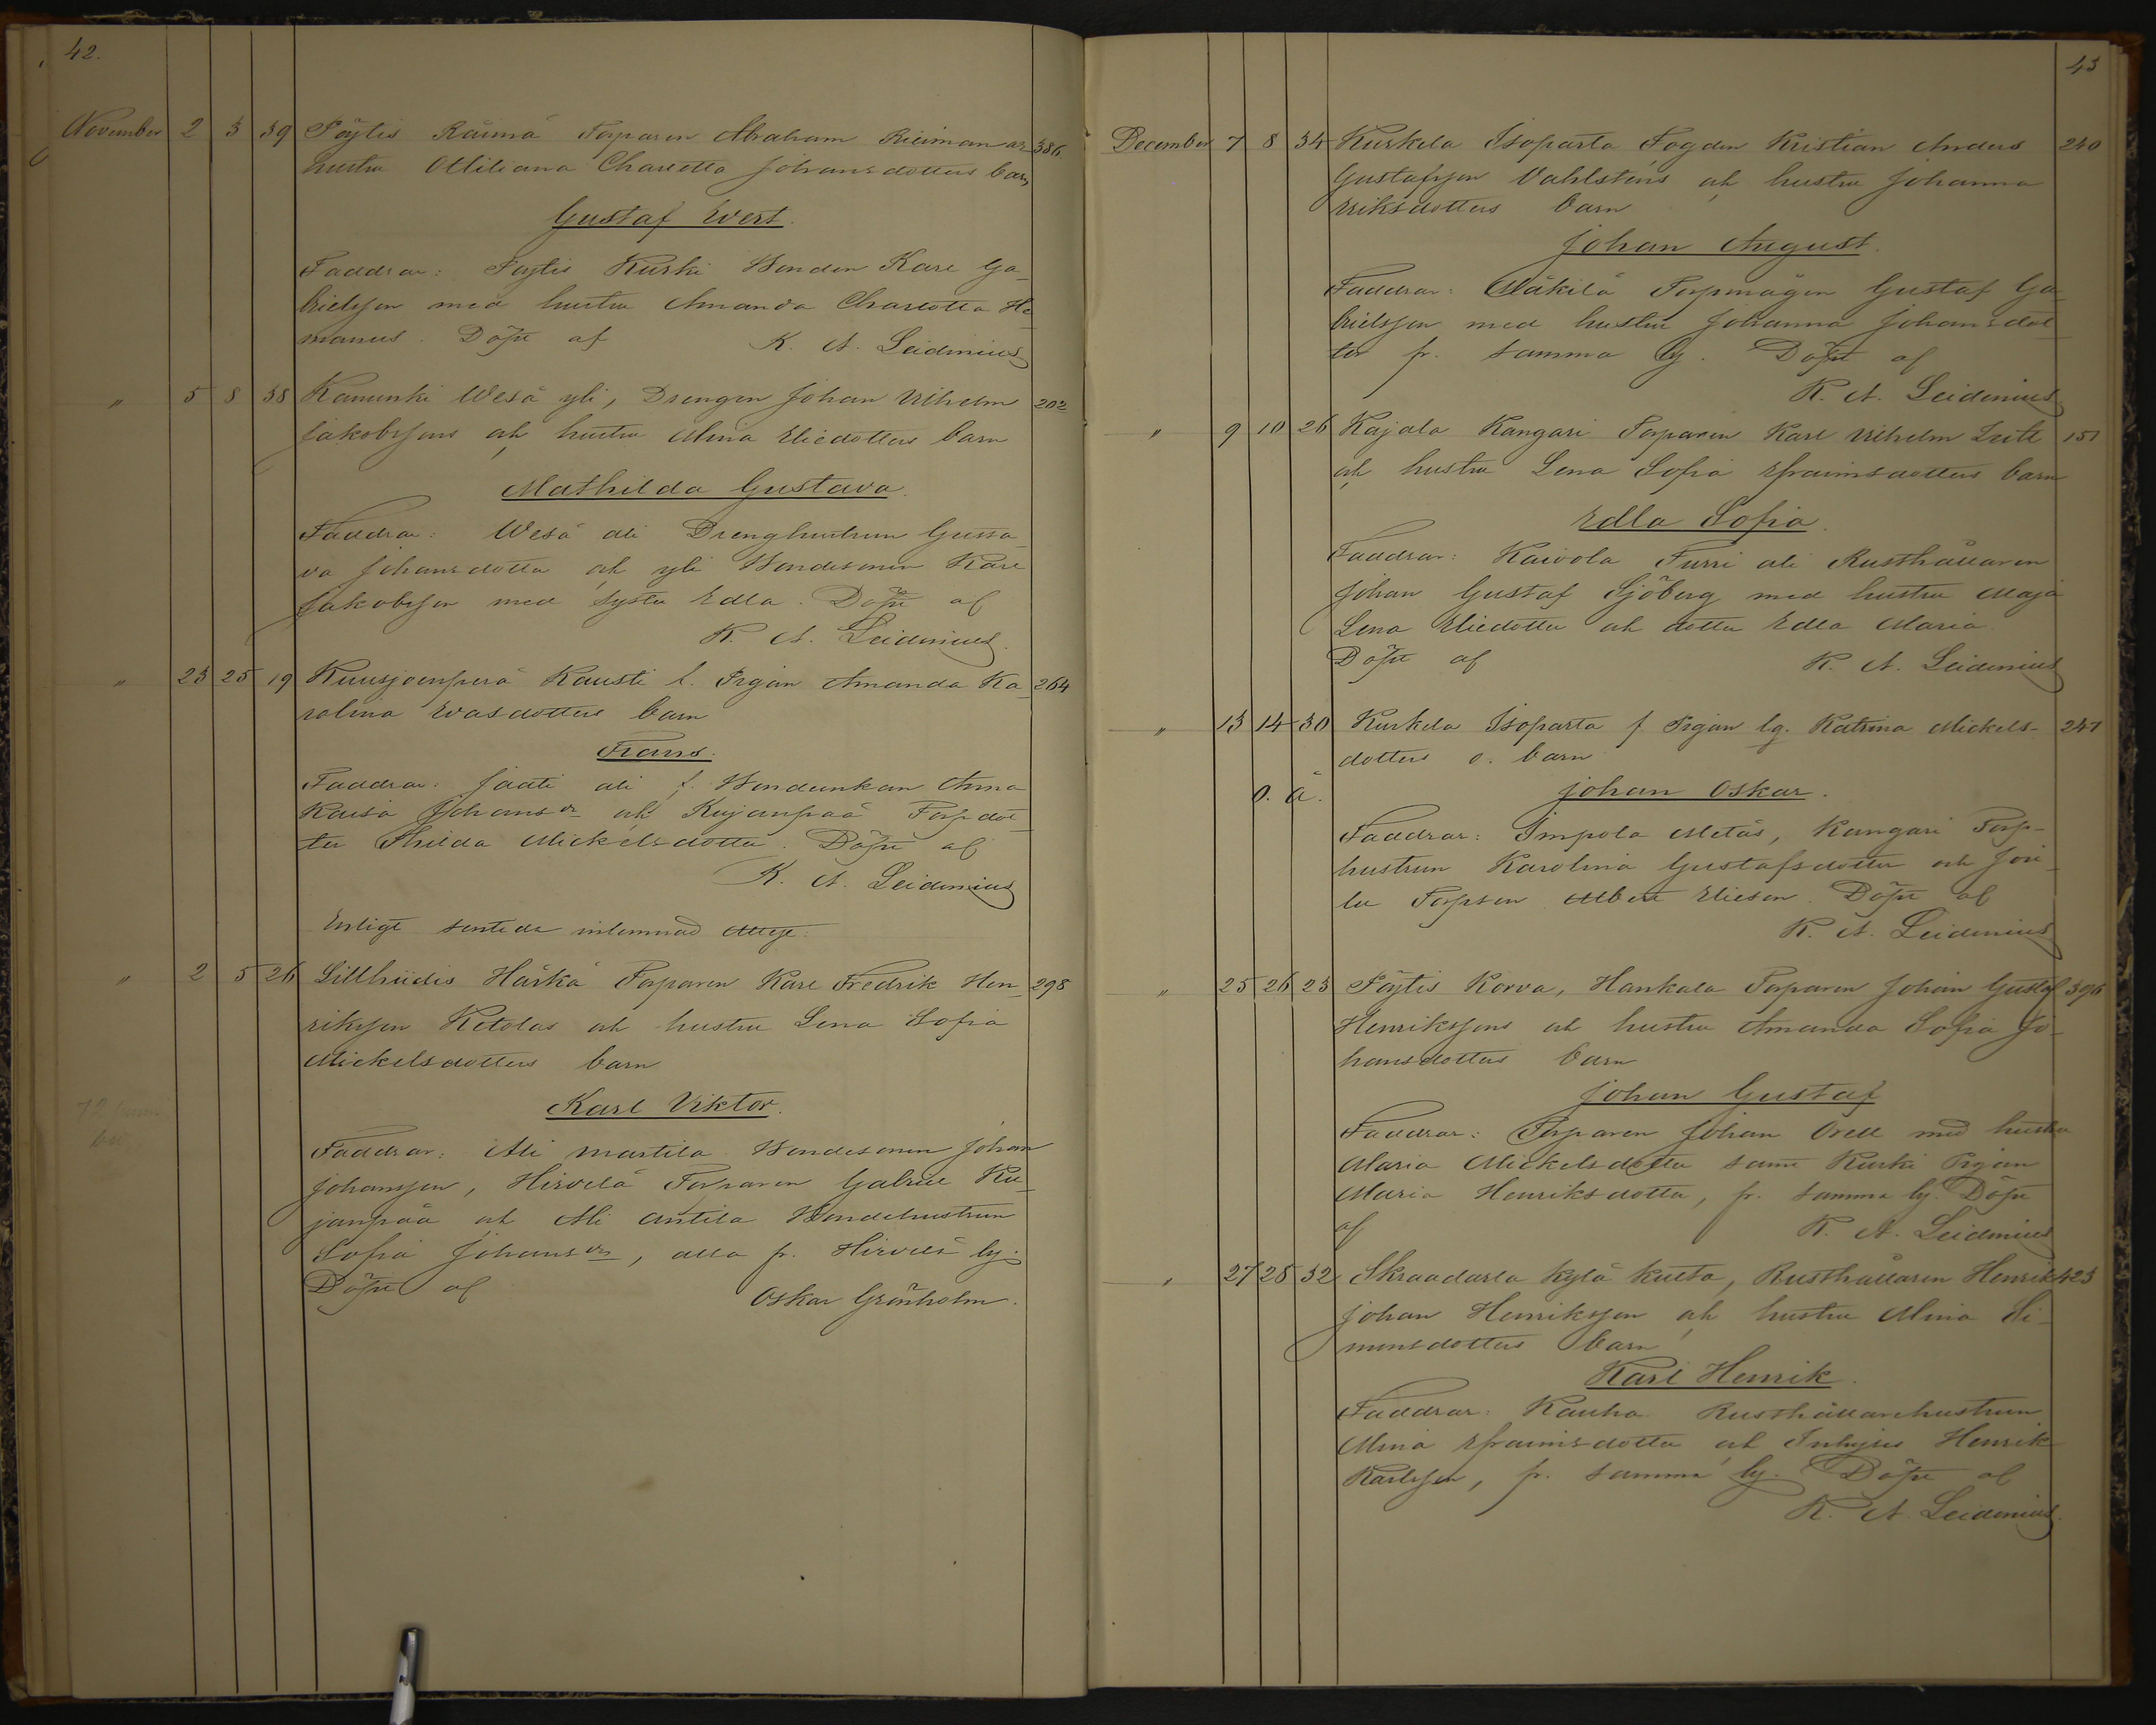 42.
November 2 3 39 Pöytis Räimä Torparen Abraham Rieiman o. 386
hustru Miliana Charlotta Johansdotters barn
Gustaf Evert.
Faddrar: Pöytis Kurki Bonden Karl Ga-
brielsson med hustru Amanda Charlotta He
manus. Döpt af K. A. Leidenius
" 5 8 38 Kanunki Wesä yli, Drengen Johan Vilhelm 202
Jakobssons och hustru Mina Eliedotters barn
Mathilda Gustava.
Faddrar: Wesä ali Drenghustrun Gusta-
va Johansdotter och yli Bondesonen Karl
Jakobsson med syster Edla. Döpt af
K. A. Leidenius.
" 23 25 19 Kuusjoenperä Kausti l. Pigan Amanda Ka- 264
rolina Evasdotters barn
Frans.
Faddrar: Jaati ali f. Bondeenkan Anna
Kaisa Johansdr och Kujanpää Torpdot-
ter Hilda Mickelsdotter. Döpt af
K. A. Leidenius
Enligt inlemnad
" 2 5 26 Lillhiidis Härkä Torparen Karl Fredrik Hen- 298
riksson Ketolas och hustru Lena Sofia
Mickelsdotters barn
Karl Viktor.
Faddrar: Ali Martila Bondesonen Johan
Johansson, Hirvelä Torparen Gabriel Ku-
janpää och Ali Antila Bondehustrun
Sofia Johansdr, alla fr. Hirvelä by.
Döpt af Oskar Grönholm.
43
December 7 8 34 Kurkela Isoparta Fogden Kristian Anders 240
Gustafsson Vahlstens och hustru Johanna
Eriksdotters barn
Johan August.
Faddrar: Mäkilä Torpmågen Gustaf Ga-
brielsson med hustru Johanna Johansdot-
ter fr. samma by. Döpt af
K. A. Leidenius
" 9 10 26 Kajala Kangari Torparen Karl Vilhelm 151
och hustru Lena Sofia Efraimsdotters barn
Edla Sofia.
Faddrar: Kaivola Furri ali Rusthållaren
Johan Gustaf Sjöberg med hustru Maja
Lena Eliedotter och dotter Edla Maria.
Döpt af K. A. Leidenius
" 13 14 30 Kurkela Isoparta f Pigan lg. Katrina Mickels- 247
dotters o. barn
O. Ä. Johan Oskar.
Faddrar: Impola Metäs, Kangari Torp-
hustrun Karolina Gustafsdotter och
Torpson Albert Elieson. Döpt af
K. A. Leidenius
" 25 26 23 Pöytis Korva, Hankala Torparen Johan Gustaf 396
Henrikssons och hustru Amanda Sofia Jo-
hansdotters barn
Johan Gustaf
Faddrar: Torparen Johan Orell med hustru
Maria Mickelsdotter samt Kurki Pigan
Maria Henriksdotter, fr. samma by. Döpt
af K. A. Leidenius
" 27 28 32 Skraadarla Kylä kulta, Rusthållaren Henrik 423
Johan Henriksson och hustru Mina Si-
monsdotters barn
Karl Henrik.
Faddrar: Kauha Rusthållarehustrun
Mina Efraimsdotter och Inhyses Henrik
Karlsson, fr. samma by. Döpt af
K. A. Leidenius.